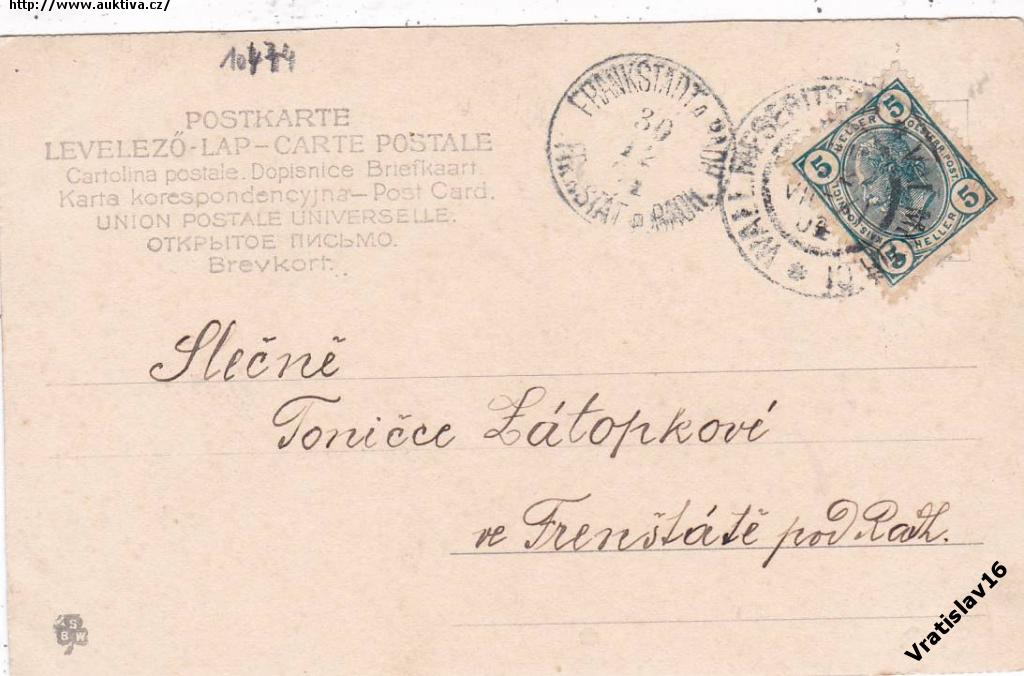 http://www.auktiva.cz/
POSTKARTE
LEVELEZŐ-LAP-CARTE POSTALE
Cartolina postale. Dopisnice Briefkaart.
Karta korespondencyjna-Post Card.
UNION POSTALE UNIVERSELLE.
ОТКРЫТОЕ ПИСЬМО.
Brevkort.
FRANKSTADT
30
5 HELLER 5
5 HELLER 5
Slečně
Toničce Zátopkové
ve Frenštátě pod Radh.
S
B W
Vratislav16